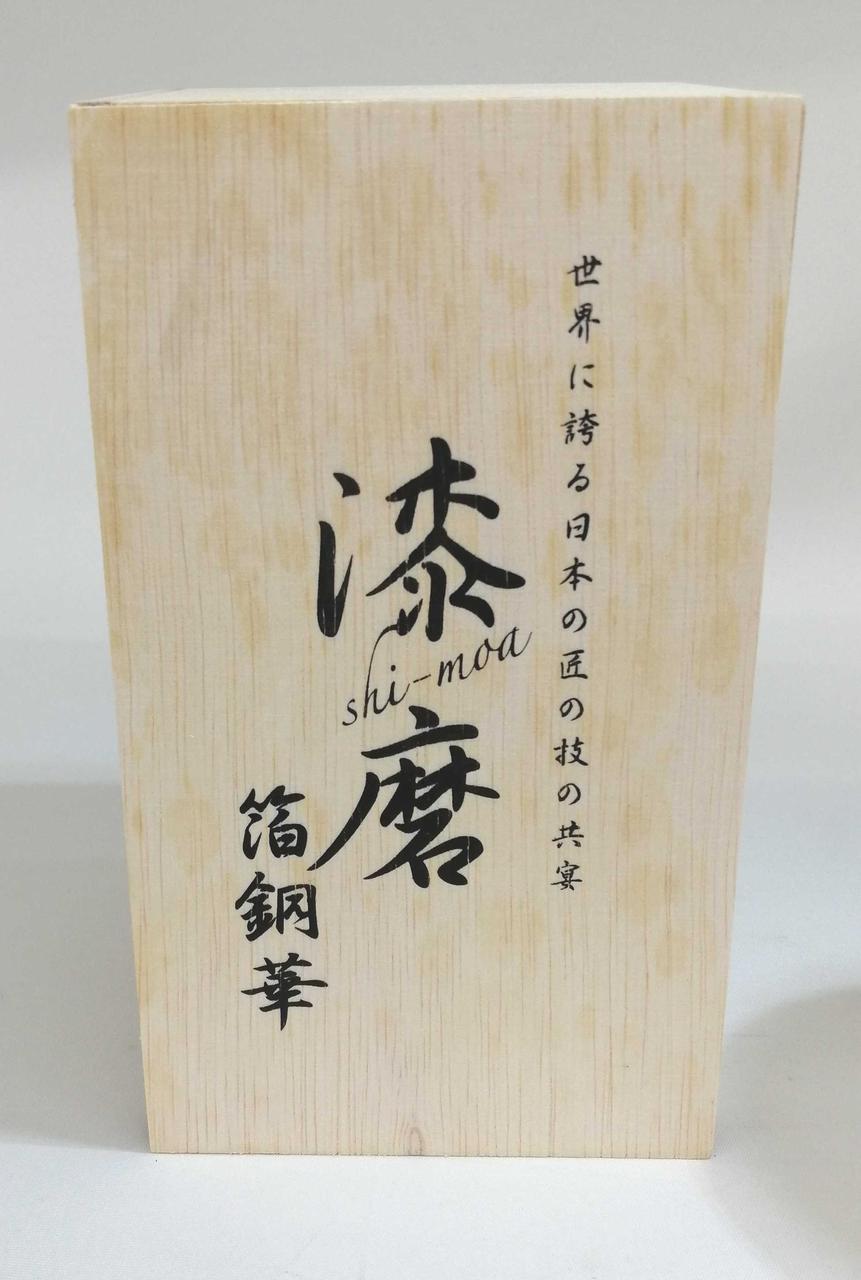 世界に誇る日本の匠の技の共宴
漆磨
shi-moa
箔銅華